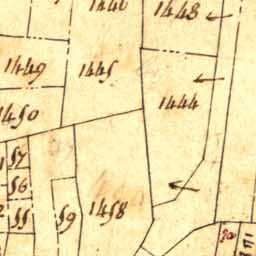 1446 1443
1449 1445 1444
1450
57
56
55 59 1458